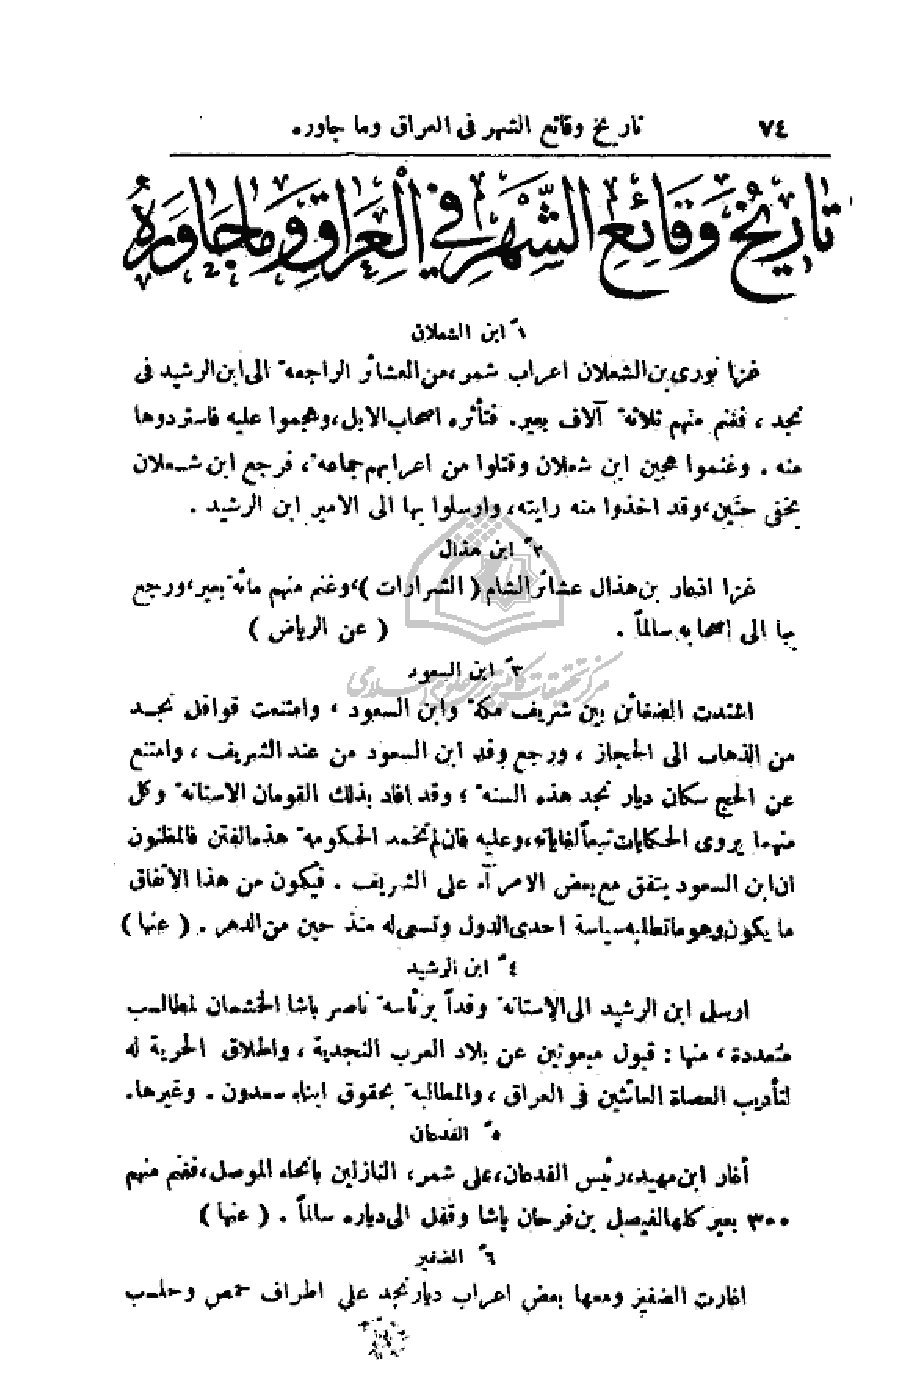 ٧٤ تاريخ وقائع الشهر في العراق وما جاوره
تاريخ وقائع الشهر في العراق وما جاوره
١ً ابن الشعلان
غزا نوري بن الشعلان اعراب شمر، من العشائر الراجعة الى ابن الرشيد في
نجد، فغنم منهم ثلاثة آلاف بعير. فتأثره اصحاب الابل، وهجموا عليه فاستردوها
منه. وغنموا هجين ابن شعلان وقتلوا من اعرابهم جماعة، فرجع ابن شعلان
بخفي حنين، وقد اخذوا منه رايته، وارسلوا بها الى الامير ابن الرشيد.
٢ً ابن هذال
غزا بن هذال عشائر الشام (الشرارات)، وغنم منهم مائة بعير، ورجع
بها الى اصحابه سالماً. (عن الرياض)
٣ً ابن السعود
مركز تحقيقات كامپيوتري علوم اسلامي
اشتدت الضغائن بين شريف مكة وابن السعود، وامتنعت قوافل نجد
من الذهاب الى الحجاز، ورجع وفد ابن السعود من عند الشريف، وامتنع
عن الحج سكان ديار نجد هذه السنة؛ وقد افاد بذلك القومان الاستانة وكل
منهما يروى الحكايات تبعاً لغاياته، وعليه فان لم تخمد الحكومة هذه الفتن فالمظنون
ان ابن السعود يتفق مع بعض الامرآء على الشريف. فيكون من هذا الاتفاق
ما يكون وهو ما تطلبه سياسة احدى الدول وتسعى له منذ حين من الدهر. (عنها)
٤ً ابن الرشيد
ارسل ابن الرشيد الى الاستانة وفداً برئاسة ناصر باشا الخشمان لمطالب
متعددة، منها: قبول مبعوثين عن بلاد العرب النجدية، واطلاق الحرية له
لتأديب العصاة العائثين في العراق، والمطالبة بحقوق ابناء سعدون. وغيرها.
٥ً الفدعان
أغار ابن مهيد، رئيس الفدعان، على شمر، النازلين بانحاء الموصل، فغنم منهم
٣٠٠ بعير كلها لفيصل بن فرحان باشا وقفل الى دياره سالماً. (عنها)
٦ً الضفير
اغارت الضفير ومعها بعض اعراب ديار نجد على اطراف حمص وحلب